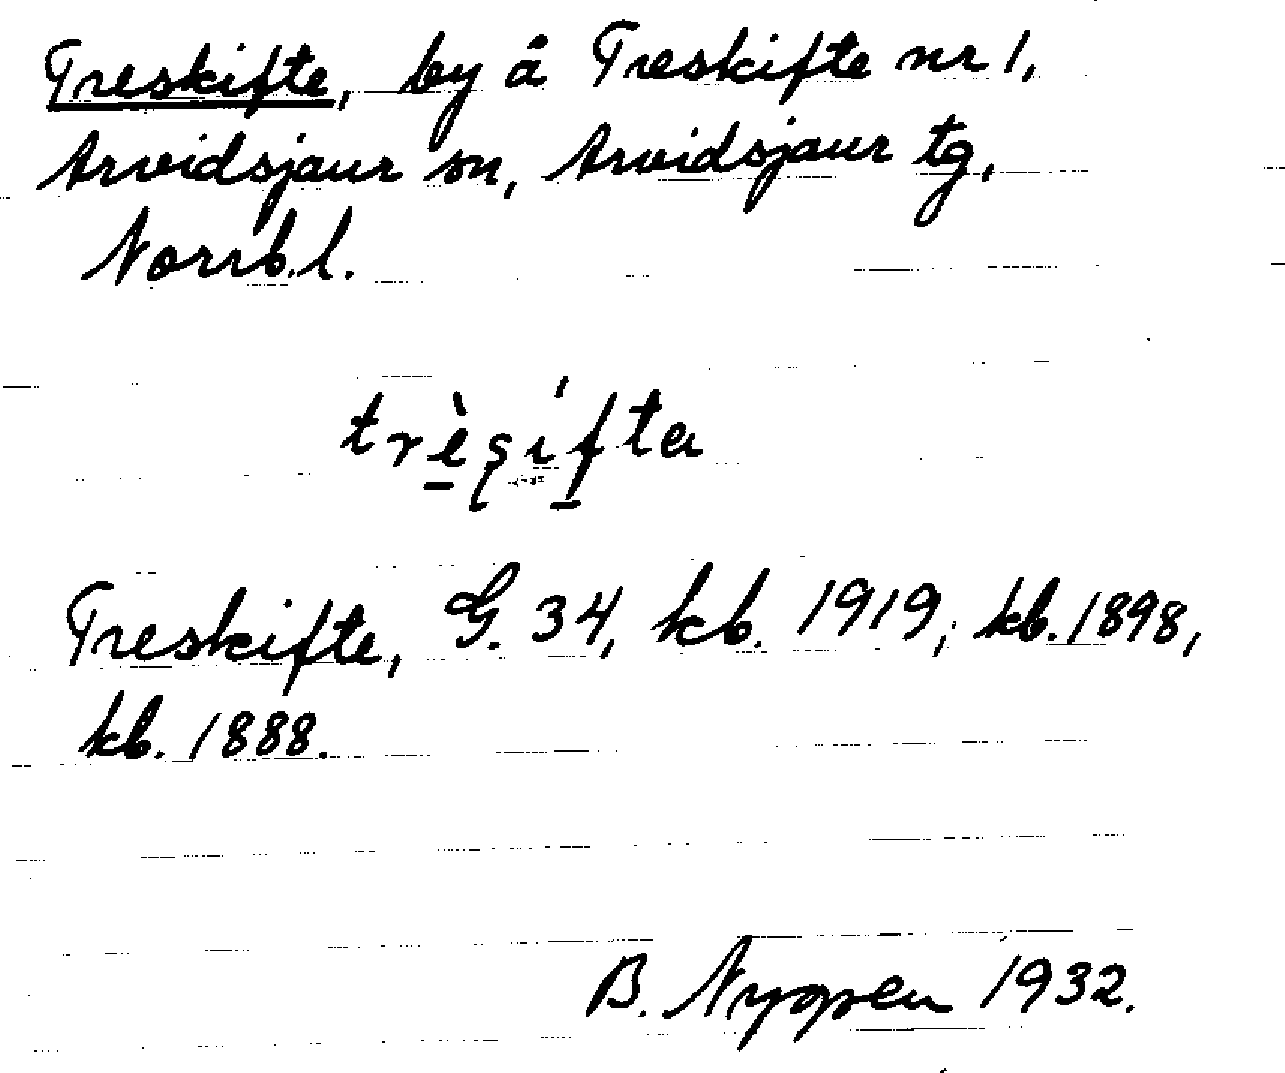 Treskifte, by å Treskifte nr 1,
Arvidsjaur sn, Arvidsjaur tg,
Norrb. l.
trèşı́fta
Treskifte, G. 34, kb. 1919, kb. 1898,
kb. 1888.
B. Nygren 1932.